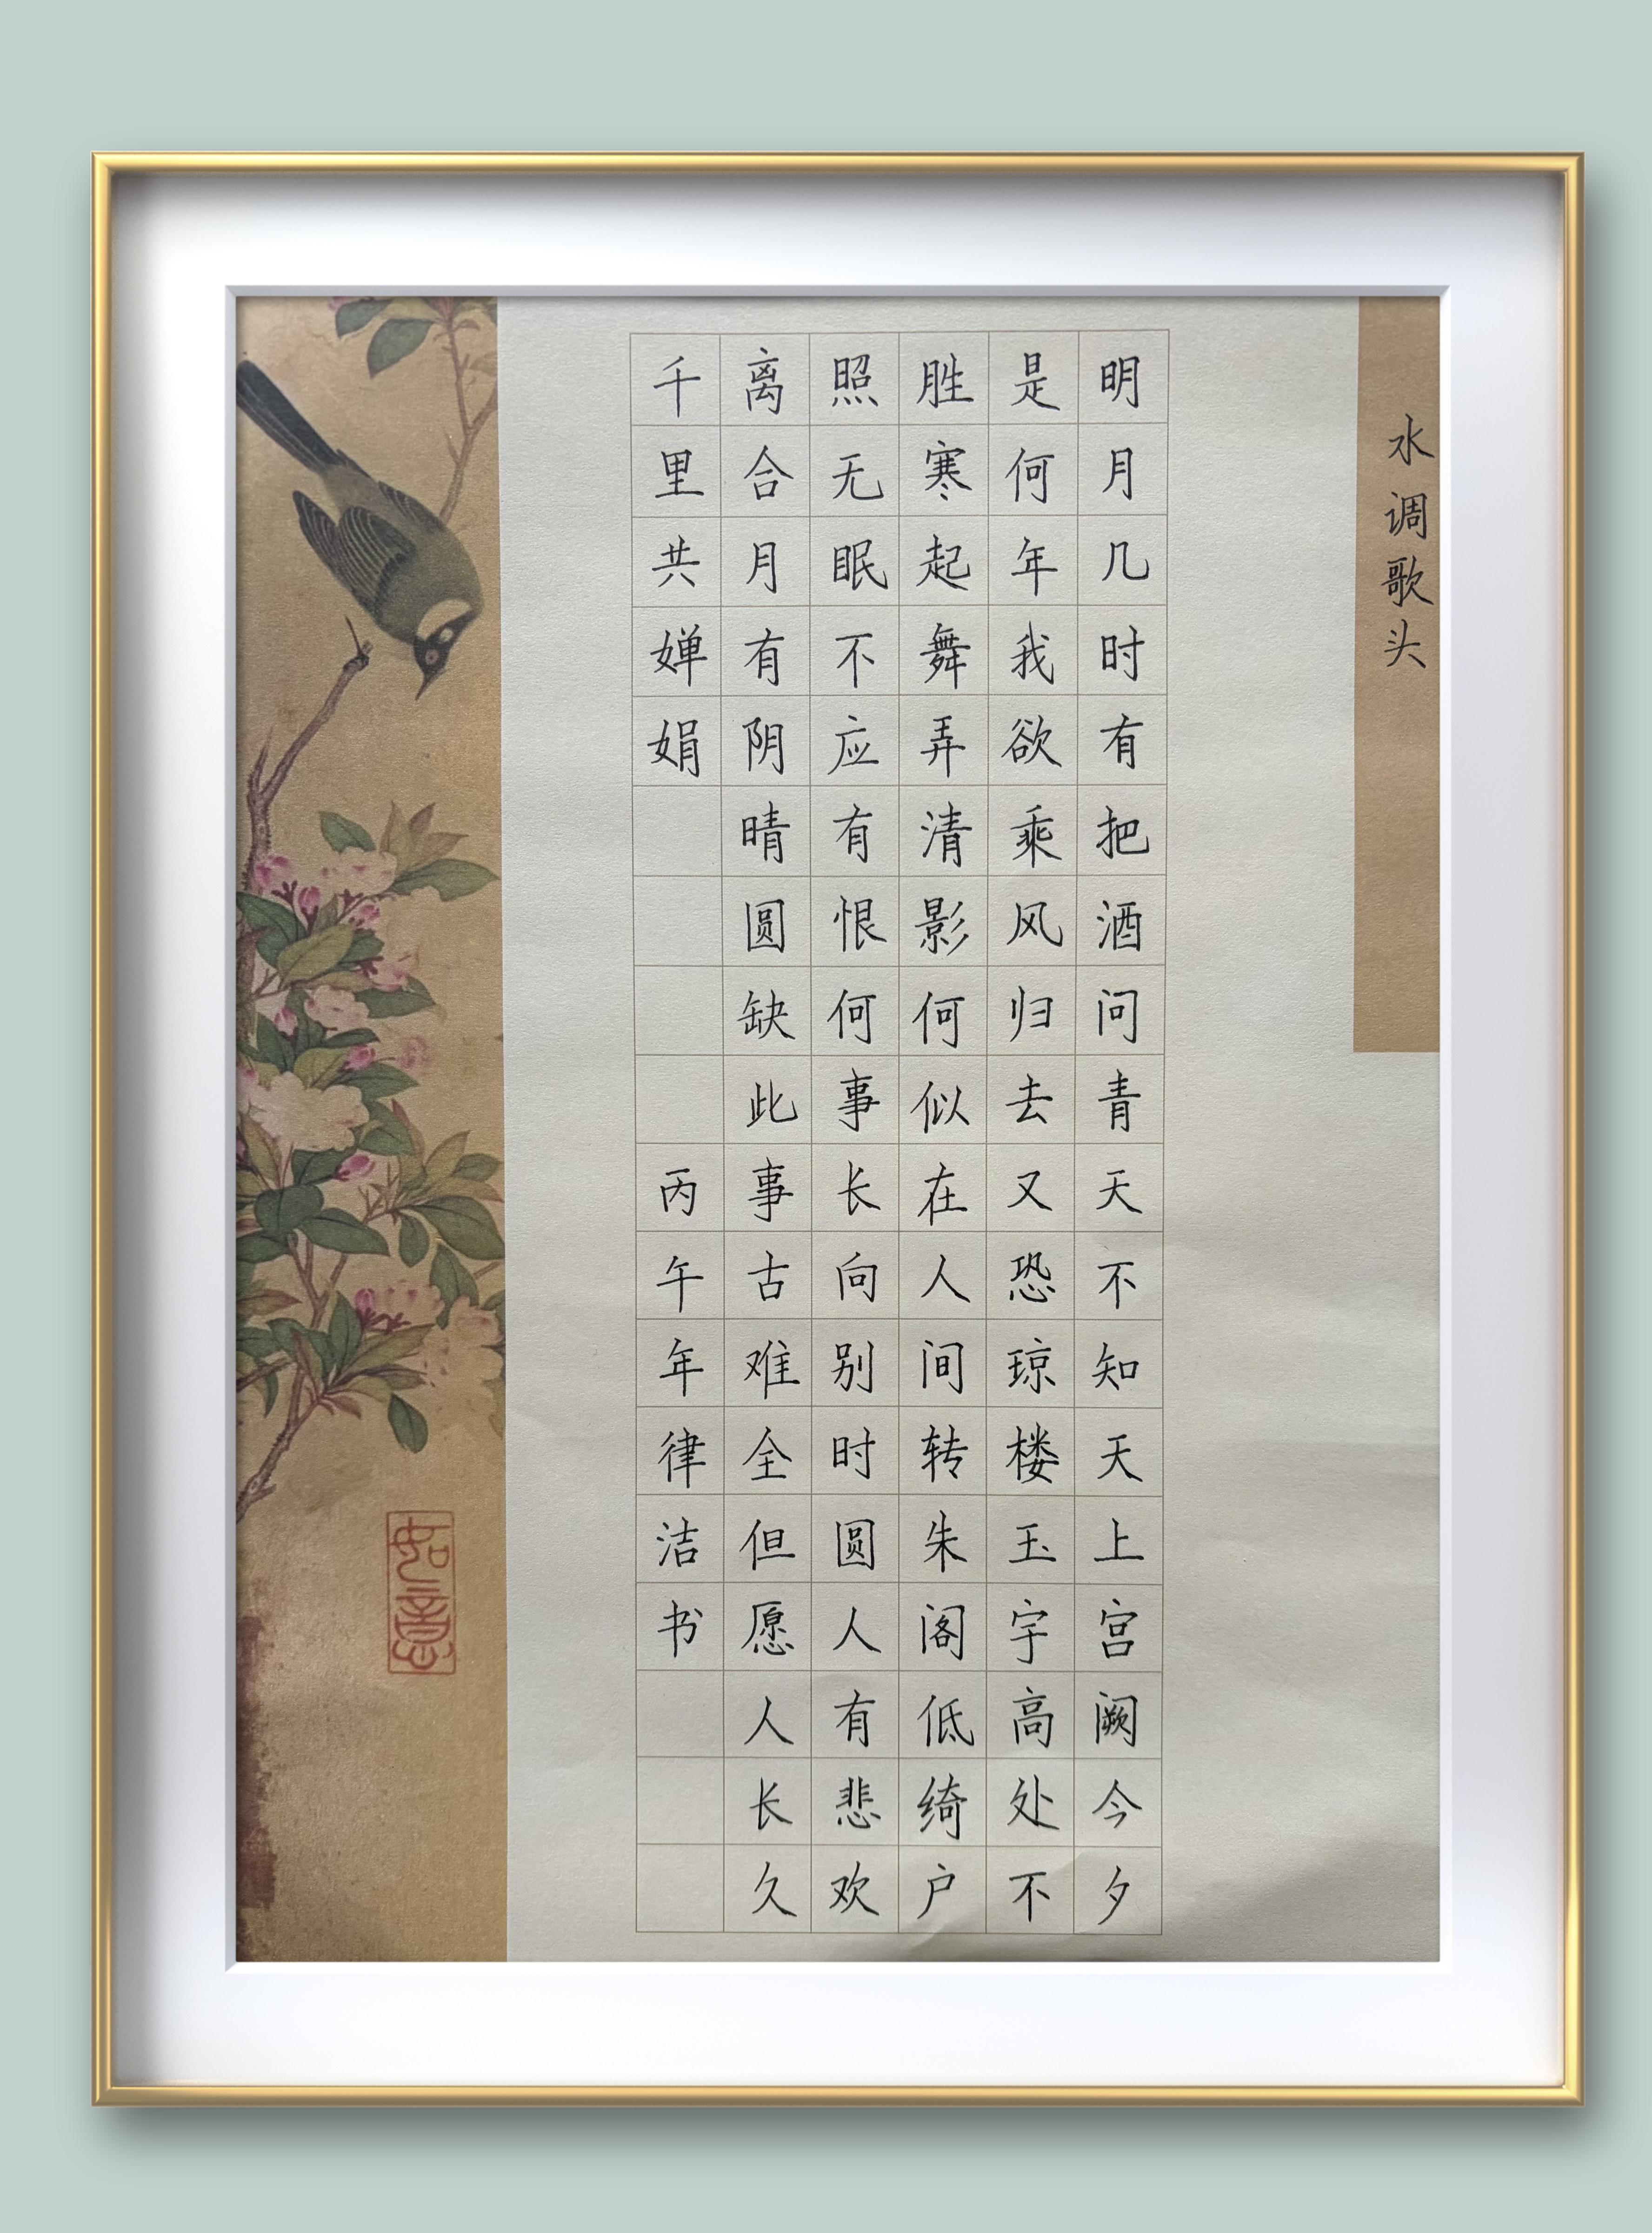 水调歌头
明月几时有把酒问青天不知天上宫阙今夕
是何年我欲乘风归去又恐琼楼玉宇高处不
胜寒起舞弄清影何似在人间转朱阁低绮户
照无眠不应有恨何事长向别时圆人有悲欢
离合月有阴晴圆缺此事古难全但愿人长久
千里共婵娟
丙午年律洁书
如意